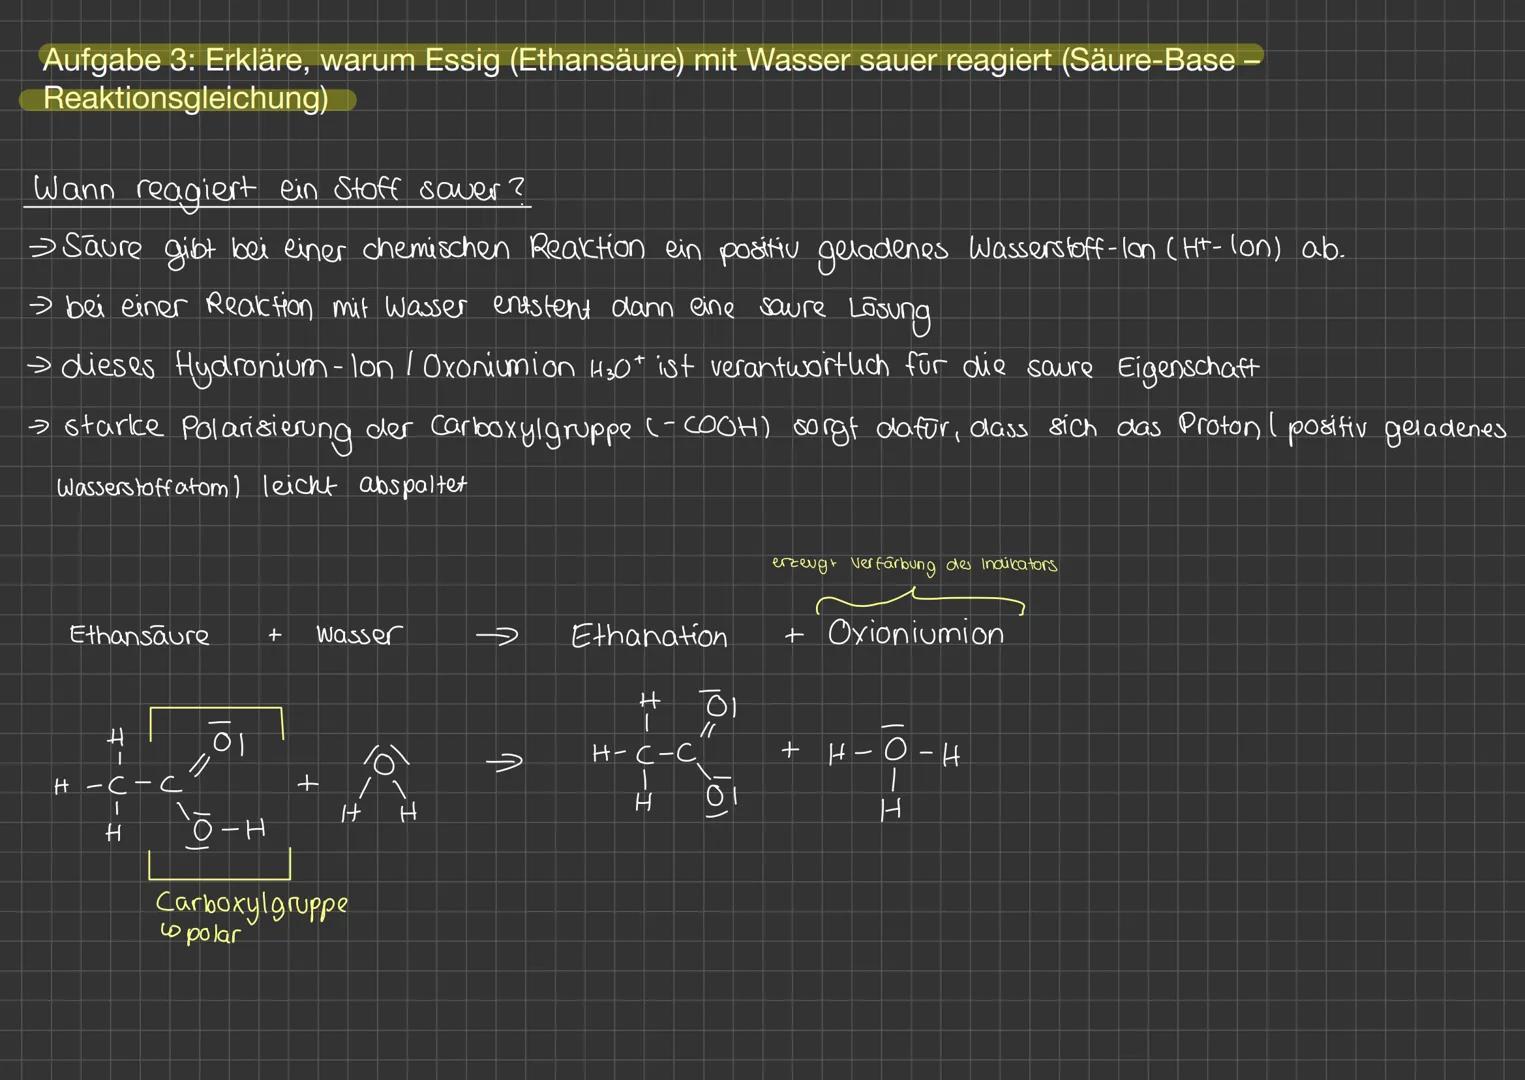 Aufgabe 3: Erkläre, warum Essig (Ethansäure) mit Wasser sauer reagiert (Säure-Base –
Reaktionsgleichung)
Wann reagiert ein Stoff sauer?
→ Säure gibt bei einer chemischen Reaktion ein positiv geladenes Wasserstoff-Ion (H+-Ion) ab.
→ bei einer Reaktion mit Wasser entsteht dann eine saure Lösung
→ dieses Hydronium-Ion / Oxoniumion H₃O⁺ ist verantwortlich für die saure Eigenschaft
→ starke Polarisierung der Carboxylgruppe (-COOH) sorgt dafür, dass sich das Proton (positiv geladenes
Wasserstoffatom) leicht abspaltet
erzeugt Verfärbung des Indikators
Ethansäure + Wasser → Ethanation + Oxioniumion
H O H O
H - C - C + O → H - C - C + H - O - H
H O - H H H H O H
Carboxylgruppe
↪ polar